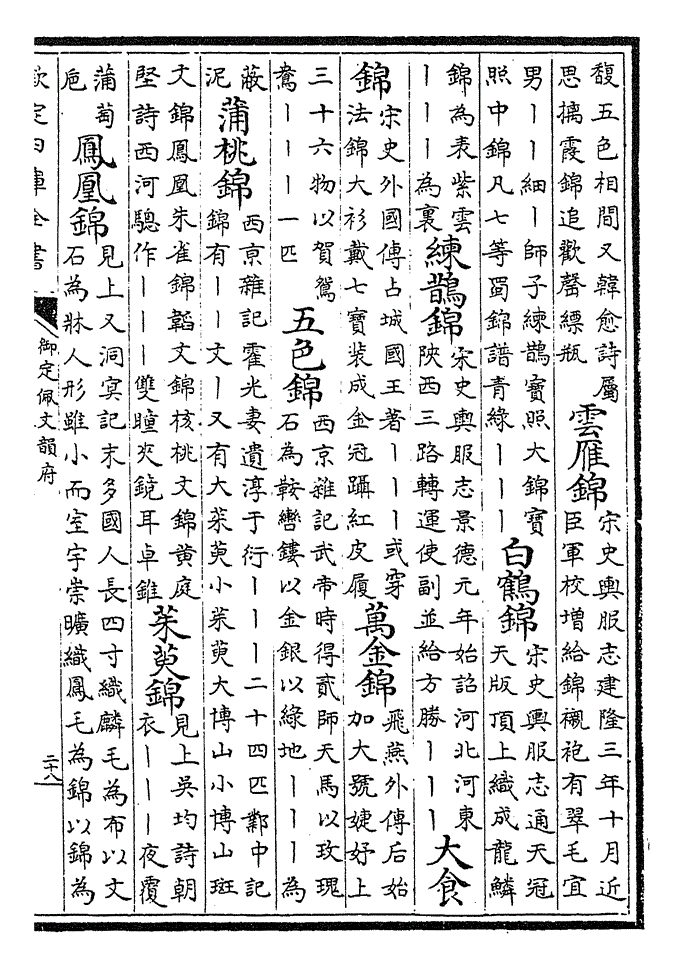 馥五色相間又韓愈詩屬
思摛霞錦追歡罄縹瓶
雲雁錦
宋史輿服志建隆三年十月近
臣軍校增給錦襯袍有翠毛宜
男丨丨細丨師子練鵲寶照大錦寶
照中錦凡七等蜀錦譜青綠丨丨丨
白鶴錦
宋史輿服志通天冠
天版頂上織成龍鱗
錦為表紫雲
丨丨丨丨為裏
練鵲錦
宋史輿服志景德元年始詔河北河東
陝西三路轉運使副並給方勝丨丨丨
大食
錦
宋史外國傳占城國王著丨丨丨或穿
法錦大衫戴七寶裝成金冠躡紅皮履
萬金錦
飛燕外傳后始
加大號婕妤上
三十六物以賀鴛
鴦丨丨丨一匹
五色錦
西京雜記武帝時得貳師天馬以玫瑰
石為鞍轡鏤以金銀以綠地丨丨丨為
蔽
泥
蒲桃錦
西京雜記霍光妻遺淳于衍丨丨丨二十四匹鄴中記
錦有丨丨文丨又有大茱萸小茱萸大博山小博山斑
文錦鳳凰朱雀錦韜文錦核桃文錦黄庭
堅詩西河驄作丨丨丨雙瞳夾鏡耳卓錐
茱萸錦
見上吳均詩朝
衣丨丨丨夜覆
蒲萄
巵
鳳凰錦
見上又洞冥記末多國人長四寸織麟毛為布以文
石為牀人形雖小而室宇崇曠織鳳毛為錦以錦為
欽定四庫全書
御定佩文韻府
二十八